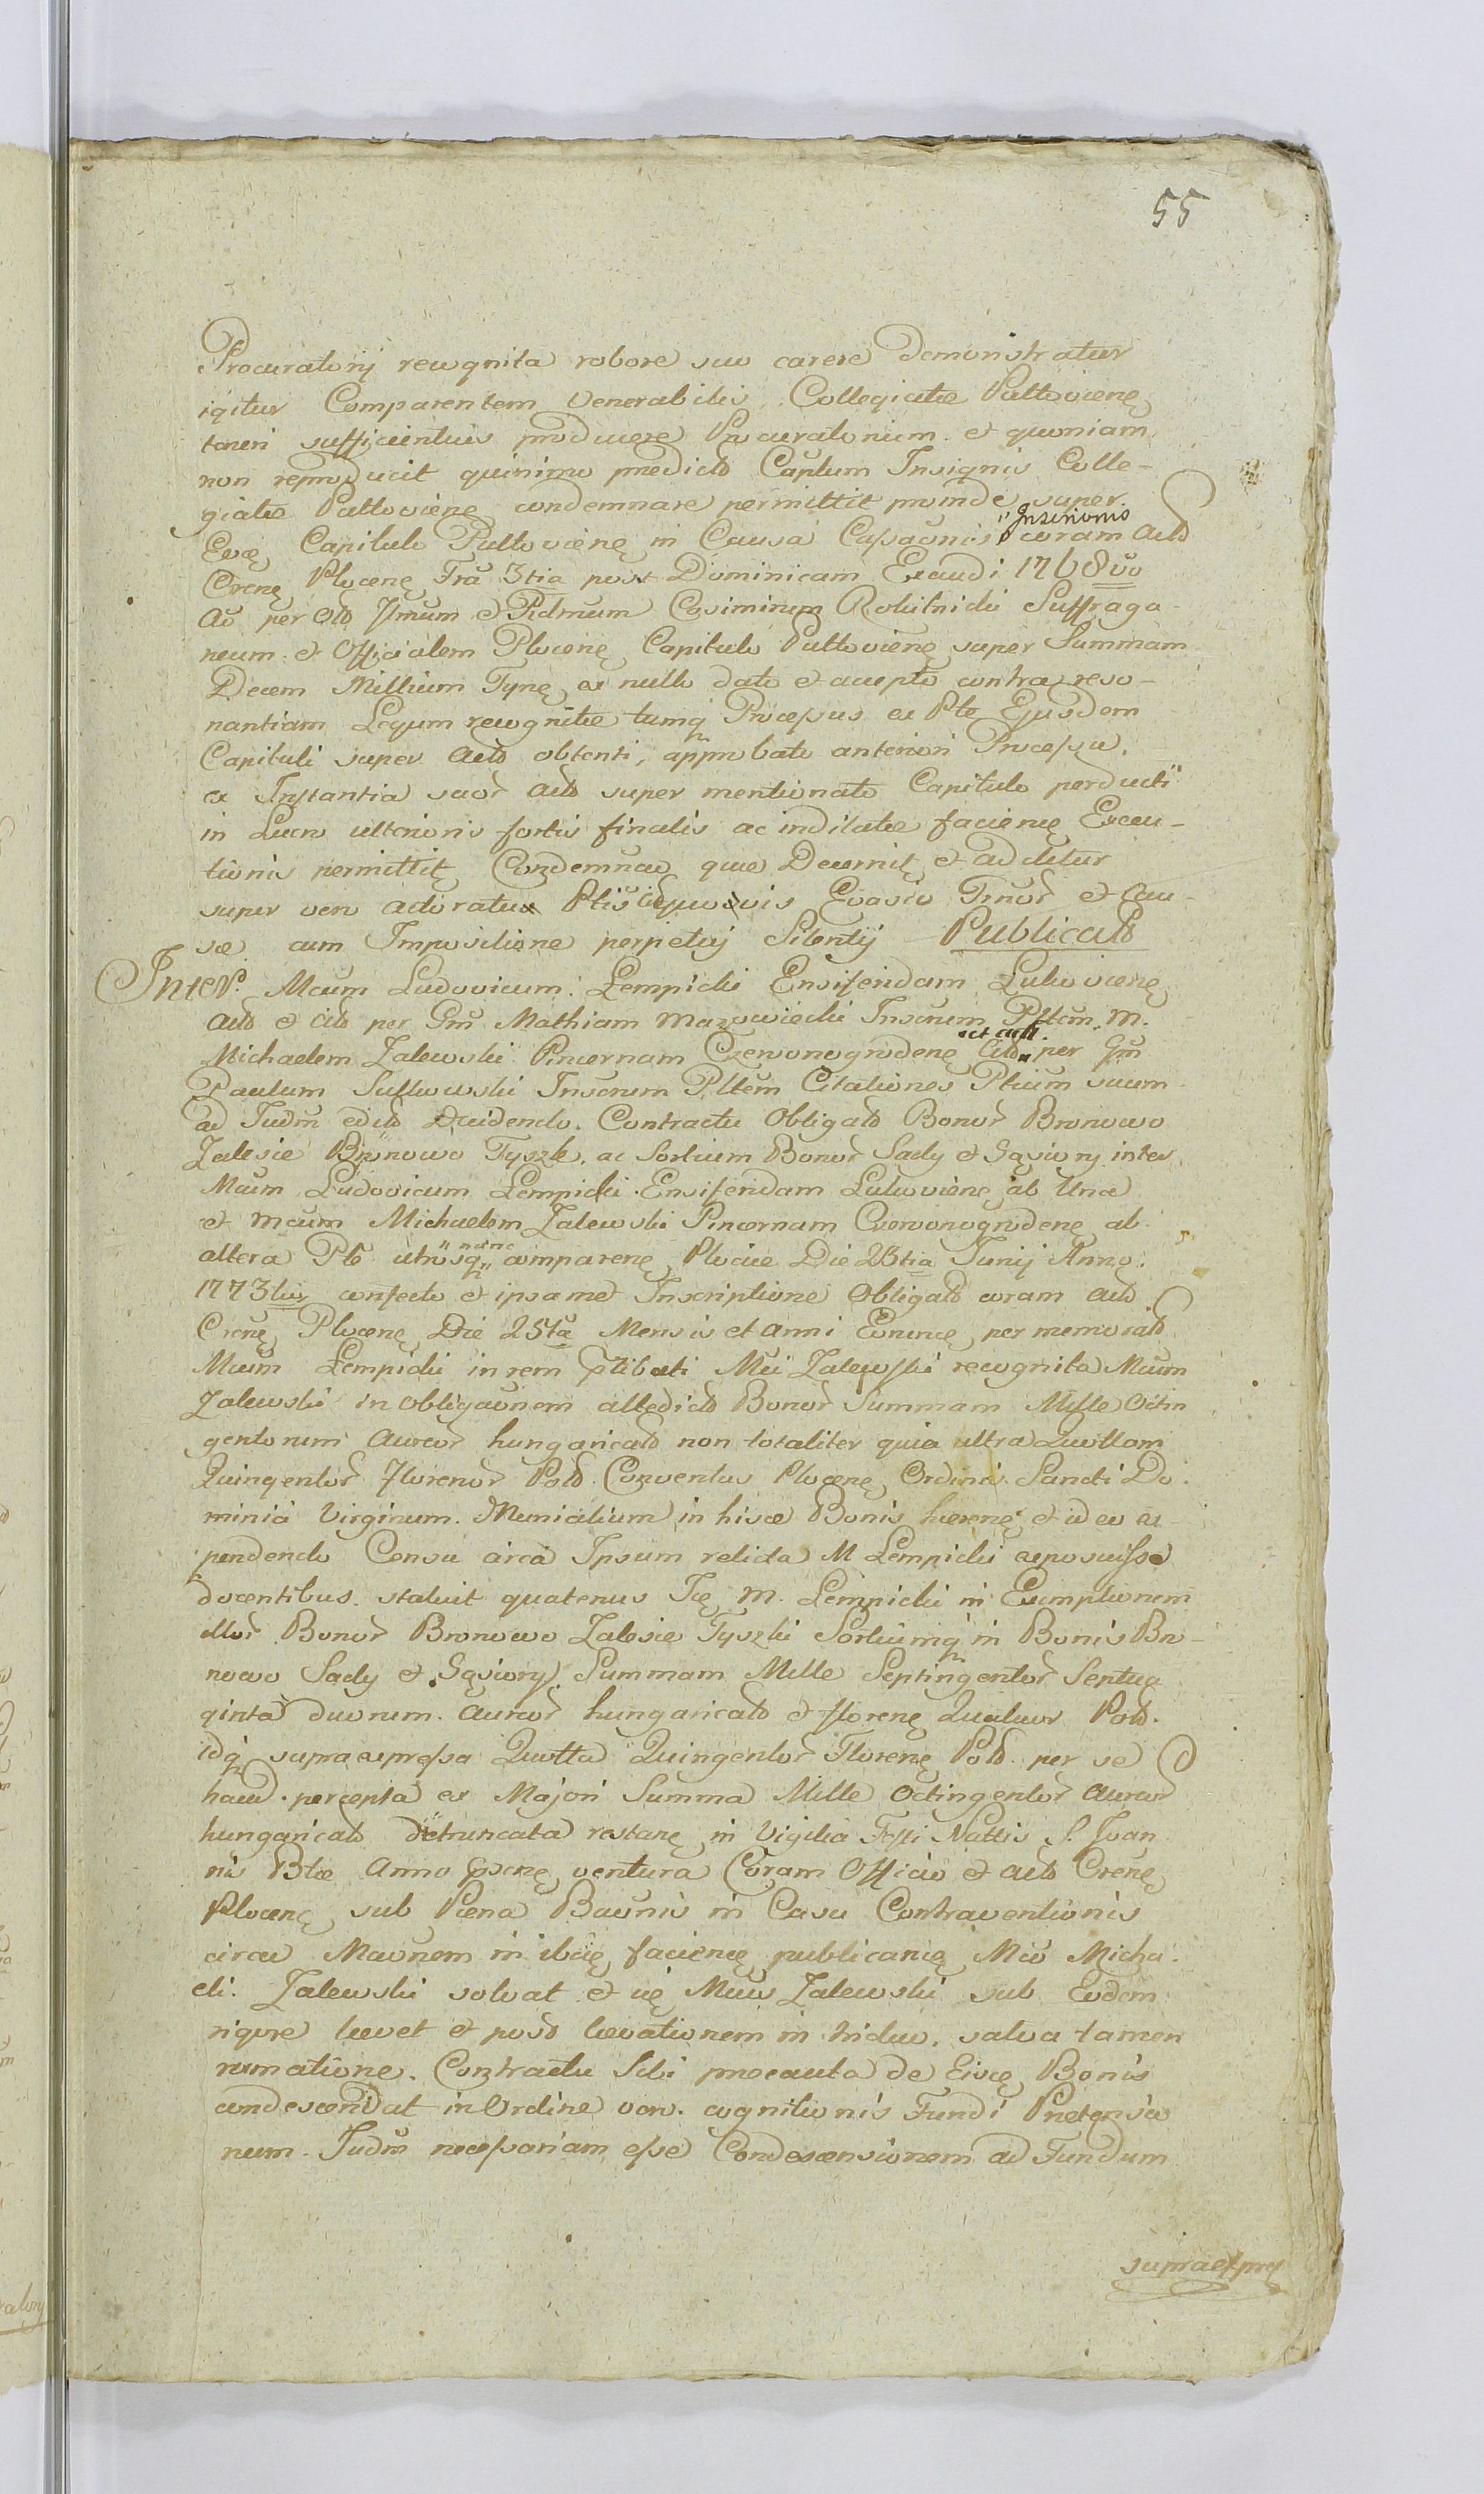 55
Procuratorij recognita robore suo carere Demonstratur
igitur Comparentem Venerabilis Collegiatæ Pultovienę
teneri sufficientius producere Procuratorium et quoniam
non reproducit quinimo prædicto Captum Insignis Colle-
giatæ Pultovienę condemnare permittit proinde super
Inscrionis
Eoę Capitulo Pultovienę in Causa Cassaõnis coram Actis
Crenę Plocenę Fra 3tia post Dominicam Exaudi 1768vo
Aõ per olb Jllmum et Rdmum Cosimirum Rokitnicki Suffraga-
neum et Officialem Plocenę Capitulo Pultovienę super Summam
Decem Millium Tynę ex nullo dato et accepto contra reso-
nantiam Legum recognitæ tumq Processus ex Pte Ejusdem
Capituli super Actb obtenti, approbato anteriori Processu,
ex Instantia suor Actb super mentionato Capitulo perducti
in Lucro ulterioris fortis finalis ac indilatæ facienę Execu-
tionis permittit Condemnae quæ Decernit et additur
super vero adoratu Ptis Evasio Trnor et Cau-
sæ cum Impositione perpetuj Silentij Publicatb
Inter Mcum Ludovicum Lempicki Ensiferidam Lukovienę
Actb et Citb per Gm Mathiam Mazowiecki Inscrum Pltem M.
act
Michaelem Zalewski Pincernam Czerwonogrodenę Citb per Gm
Paulum Sutkowski Inscrum Pltem Citationes Ptium suum
ad Judm editb Decidendo. Contractu Obligatb Bonor Bronowo
Zalesie Bronowo Tyszki ac Sortium Bonor Sady et Gąsiory inter
Mcum Ludovicum Lempicki Ensiferidam Lukovienę ab Una
et Mcum Michaelem Zalewski Pincernam Czerwonogrodenę ab
altera Pte utrosq comparenę Plociæ Die 23tia Junij Anno
1773tio confecto et ipsamet Inscriptione Obligatb coram Actb
Crenę Plocenę Die 25ta Mensis et anni Eorunę per memoratb
Mcum Lempicki in rem ptibati Mci Zalewski recognita Mcum
Zalewski in obligaõnem attedictb Bonor Summam Mille Octin
gentorum Aureor hungaricatb non totaliter quia ultra Quottam
Quingentor Florenor Polb Conventus Plocenę Ordinis Sancti Do-
minici Virginum Monialium in hisce Bonis hærenę et ideo ex
pendendo Censu circa Ipsum relicta M Lempicki exposuisse
docentibus statuit quatenus Ię M. Lempicki in Exemptionem
illor Bonor Bronowo Zalesie Tyszki Sortiumq in Bonis Bro-
nowo Sady et Gąsiory Summam Mille Septingentor Septua
ginta duorum Aureor hungaricatb et florenę Quatuor Polb
idq supraexpressa Quotta Quingentor Florenę Polb per se
haud percepta ex Majori Summa Mille Octingentor Aureor
hungaricatb detruncata restanę in Vigilia Festi Nattis S. Joan
nis Btæ Anno Gpsenę ventura Coram Officio et Actb Crenę
Plocenę sub Pœna Baõnis in Casu Contraventionis
circa Maõnem in ibię facienę publicanię Mco Micha-
eli Zalewski solvat et uę Mcus Zalewski sub Eodem
rigore levet et post levationem in triduo, salva tamen
rumatione Contractu Sibi præcauta de Eisę Bonis
condescendat in Ordine vero cognitionis Fundi Prætensio
num Judm necessariam esse Condescensionem ad Fundum
supraexpres